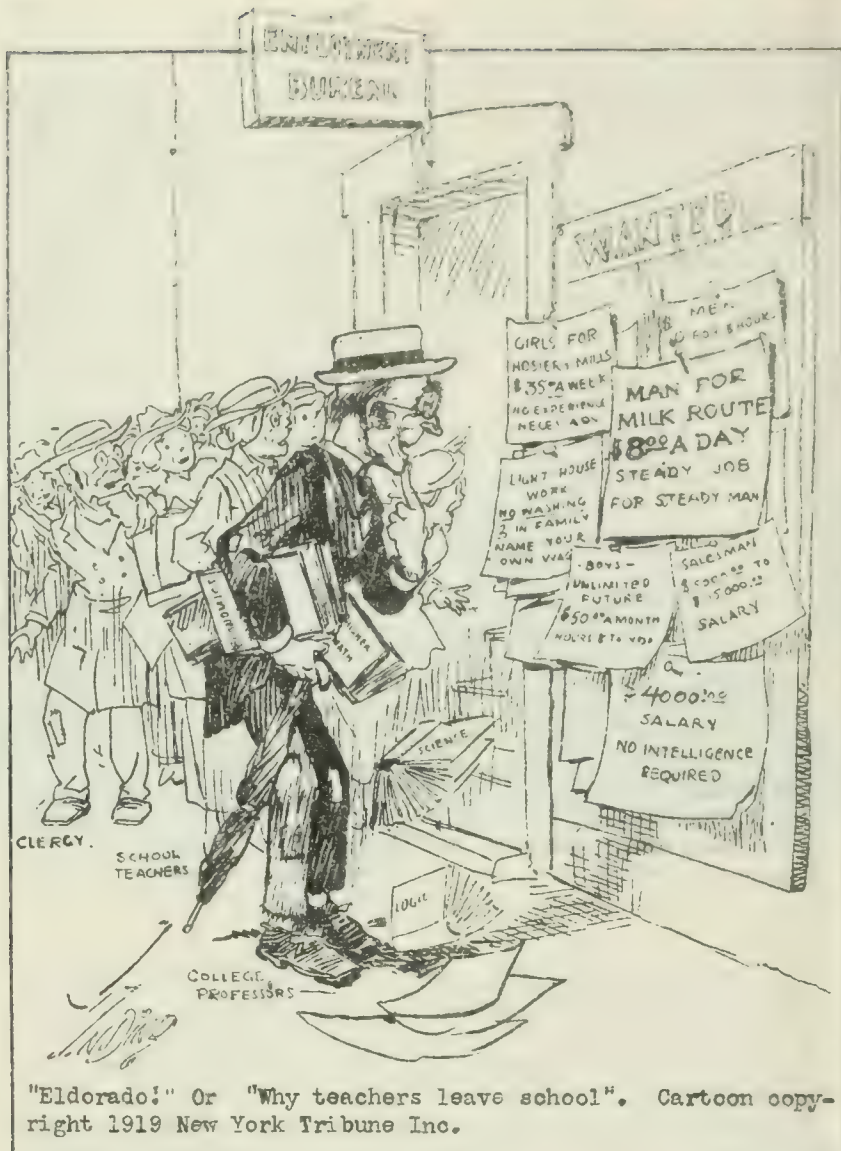 EMPLOYMENT
BUREAU
WANTED
MEN
FOR 8 HOUR
GIRLS FOR
HOSIERY MILLS
$35⁰⁰ A WEEK
NO EXPERIENCE
MAN FOR
MILK ROUTE
$8⁰⁰ A DAY
STEADY JOB
FOR STEADY MAN
LIGHT HOUSE
WORK
NO WASHING
3 IN FAMILY
NAME YOUR
OWN WAGE
-BOYS-
UNLIMITED
FUTURE
$50⁰⁰ A MONTH
HOURS 8 TO
SALESMAN
TO
SALARY
4000.⁰⁰
SALARY
NO INTELLIGENCE
REQUIRED
MATH
SCIENCE
LOGIC
CLERGY.
SCHOOL
TEACHERS
COLLEGE
PROFESSORS
"Eldorado!" Or "Why teachers leave school". Cartoon copy-
right 1919 New York Tribune Inc.